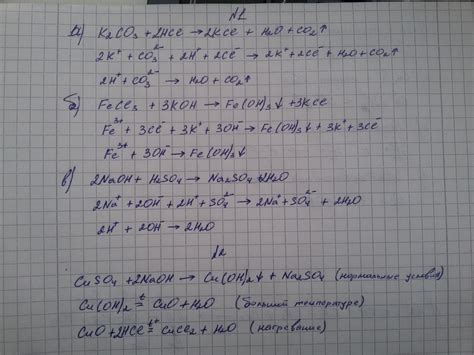 №1
а) K₂CO₃ + 2HCl → 2KCl + H₂O + CO₂↑
2K⁺ + CO₃²⁻ + 2H⁺ + 2Cl⁻ → 2K⁺ + 2Cl⁻ + H₂O + CO₂↑
2H⁺ + CO₃²⁻ → H₂O + CO₂↑
б) FeCl₃ + 3KOH → Fe(OH)₃↓ + 3KCl
Fe³⁺ + 3Cl⁻ + 3K⁺ + 3OH⁻ → Fe(OH)₃↓ + 3K⁺ + 3Cl⁻
Fe³⁺ + 3OH⁻ → Fe(OH)₃↓
в) 2NaOH + H₂SO₄ → Na₂SO₄ + 2H₂O
2Na⁺ + 2OH⁻ + 2H⁺ + SO₄²⁻ → 2Na⁺ + SO₄²⁻ + 2H₂O
2H⁺ + 2OH⁻ → 2H₂O
№2
CuSO₄ + 2NaOH → Cu(OH)₂↓ + Na₂SO₄ (нормальные условия)
Cu(OH)₂ =ᵗ CuO + H₂O (большой температуре)
CuO + 2HCl =ᵗ° CuCl₂ + H₂O (нагревание)